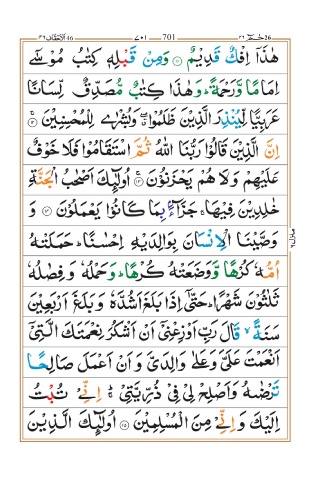 حٰمٓ 26 ٢٦ 701 ٧٠١ الاحقاف 46 ٤٦
هٰذَاۤ اِفْكٌ قَدِيْمٌ ﴿١١﴾ وَمِنْ قَبْلِهٖ كِتٰبُ مُوْسٰۤى
اِمَامًا وَّرَحْمَةً ؕ وَهٰذَا كِتٰبٌ مُّصَدِّقٌ لِّسَانًا
عَرَبِيًّا لِّيُنْذِرَ الَّذِيْنَ ظَلَمُوْا ۖ وَبُشْرٰى لِلْمُحْسِنِيْنَ ﴿١٢﴾
اِنَّ الَّذِيْنَ قَالُوْا رَبُّنَا اللّٰهُ ثُمَّ اسْتَقَامُوْا فَلَا خَوْفٌ
عَلَيْهِمْ وَلَا هُمْ يَحْزَنُوْنَ ﴿١٣﴾ اُولٰٓئِكَ اَصْحٰبُ الْجَنَّةِ
خٰلِدِيْنَ فِيْهَا ۚ جَزَآءًۢ بِمَا كَانُوْا يَعْمَلُوْنَ ﴿١٤﴾
وَوَصَّيْنَا الْاِنْسَانَ بِوَالِدَيْهِ اِحْسٰنًا ؕ حَمَلَتْهُ
اُمُّهٗ كُرْهًا وَّوَضَعَتْهُ كُرْهًا ؕ وَحَمْلُهٗ وَفِصٰلُهٗ
ثَلٰثُوْنَ شَهْرًا ؕ حَتّٰۤى اِذَا بَلَغَ اَشُدَّهٗ وَبَلَغَ اَرْبَعِيْنَ
سَنَةً ۙ قَالَ رَبِّ اَوْزِعْنِيْۤ اَنْ اَشْكُرَ نِعْمَتَكَ الَّتِيْۤ
اَنْعَمْتَ عَلَيَّ وَعَلٰى وَالِدَيَّ وَاَنْ اَعْمَلَ صَالِحًا
تَرْضٰىهُ وَاَصْلِحْ لِيْ فِيْ ذُرِّيَّتِيْ ؕ اِنِّيْ تُبْتُ
اِلَيْكَ وَاِنِّيْ مِنَ الْمُسْلِمِيْنَ ﴿١٥﴾ اُولٰٓئِكَ الَّذِيْنَ